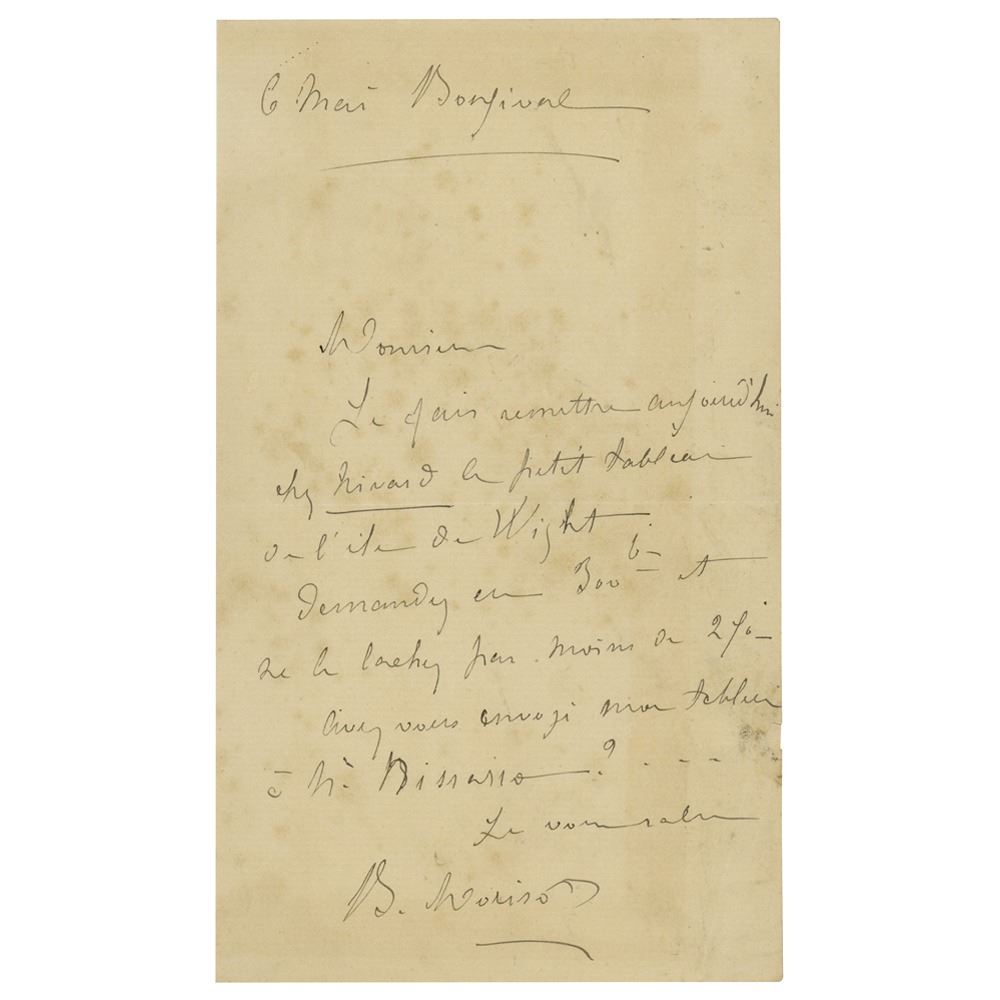 6 Mai Bougival
Monsieur
Je fais remettre aujourd'hui
chez Nivard le petit tableau
de l'ile de Wight
demandez en 300 f et
ne le lachez pas moins de 250
avez vous envoyé mon tableau
à Mr. Pissarro ? . . .
Je vous salue
B. Morisot